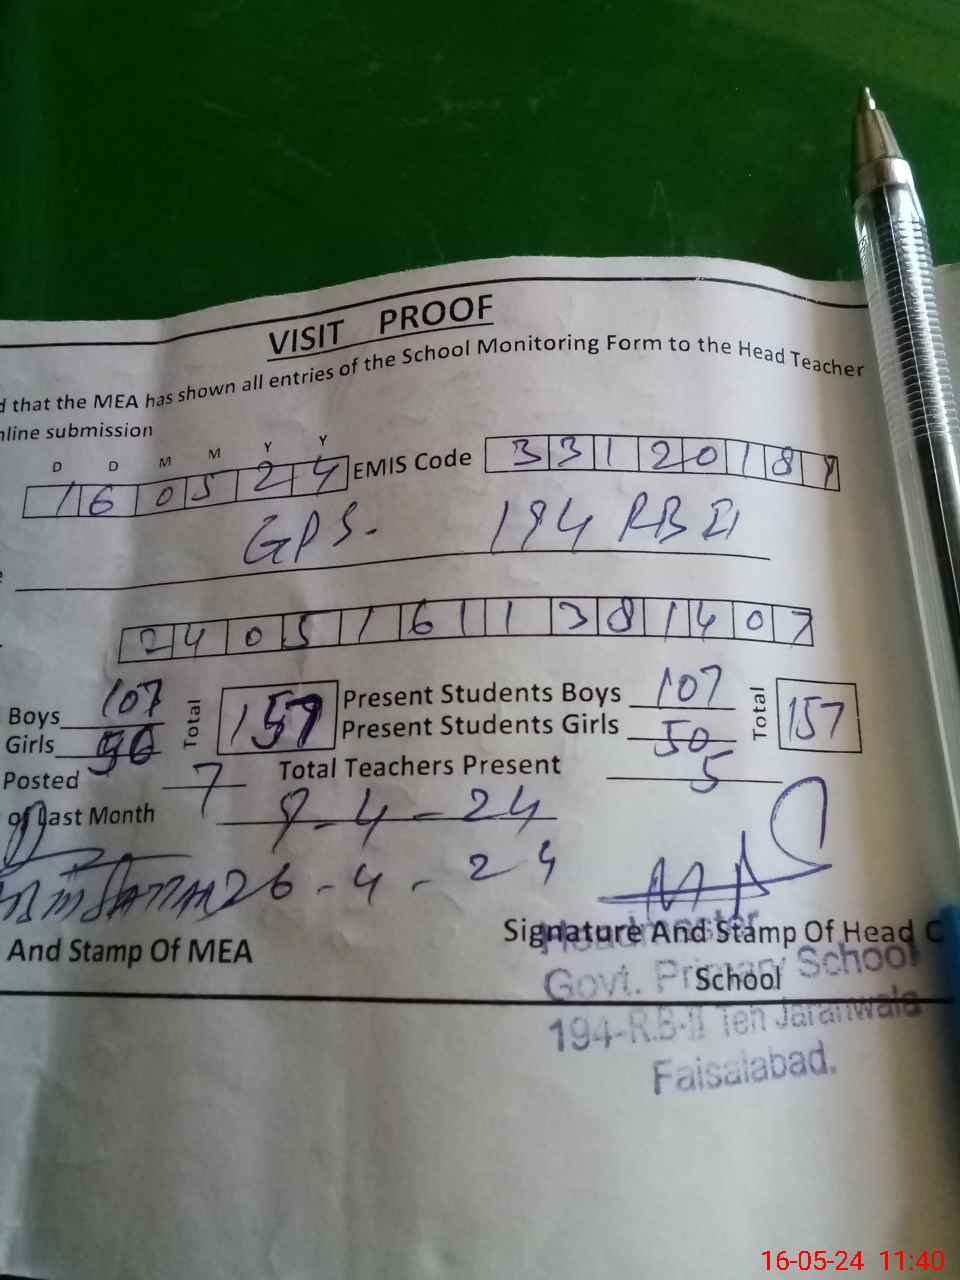 VISIT PROOF
d that the MEA has shown all entries of the School Monitoring Form to the Head Teacher
nline submission
D D M M Y Y
1 6 0 5 2 4 EMIS Code 3 3 1 2 0 1 8
GPS. 194 RB II
2 4 0 5 1 6 1 1 3 8 1 4 0 7
Boys 107 Total 157 Present Students Boys 107 Total 157
Girls 50 Present Students Girls 50
Posted 7 Total Teachers Present 5
of Last Month 9-4-24
26-4-24
And Stamp Of MEA
Signature And Stamp Of Head
School
Headmaster
Govt. Primary School
194-R.B-II Teh Jaranwala
Faisalabad.
16-05-24 11:40